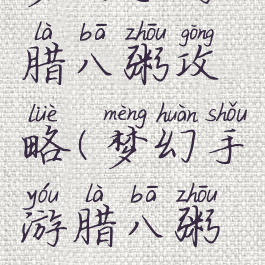 là bā zhōu gōng
腊八粥攻
lüè mèng huàn shǒu
略(梦幻手
yóu là bā zhōu
游腊八粥